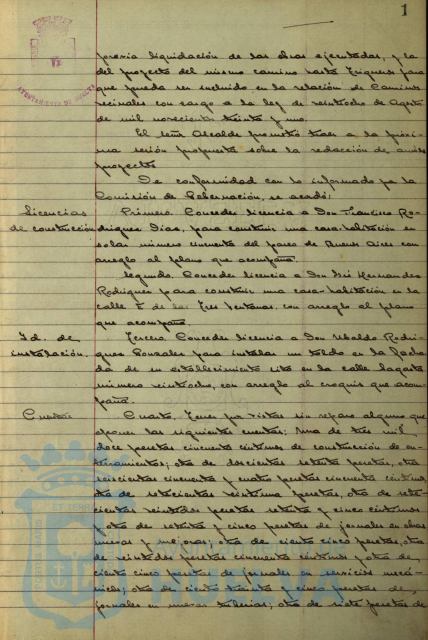 1
AYUNTAMIENTO DE HUELVA
previa liquidación de las obras ejecutadas, y la
del proyecto del mismo camino hasta Trigueros para
que pueda ser incluido en la relación de Caminos
vecinales con cargo a la ley de veintiocho de Agosto
de mil novecientos treinta y uno.
El señor Alcalde prometió traer a la próxi-
ma sesión propuesta sobre la redacción de ambos
proyectos
De conformidad con lo informado por la
Comisión de Gobernación, se acordó:
Licencias
de construcción
Primero. Conceder licencia a Don Francisco Ro-
driguez Dias, para construir una casa-habitación en
solar número cincuenta del paseo de Buenos Aires con
arreglo al plano que acompaña.
Segundo. Conceder licencia a Don Hernandez
Rodriguez para construir una casa-habitación en la
calle de las Tres Ventanas, con arreglo al plano
que acompaña.
Id. de
instalación.
Tercero. Conceder licencia a Don Ubaldo Rodri-
guez Gonzalez para instalar un toldo en la facha-
da de su establecimiento sito en la calle Sagasta
número veintiocho, con arreglo al croquis que acom-
paña.
Cuentas
Cuarto. Tener por vistas sin reparo alguno que
oponer las siguientes cuentas: Una de tres mil
doce pesetas cincuenta céntimos de construcción de en-
terramientos; otra de doscientas setenta pesetas, otra
seiscientas cincuenta y cuatro pesetas cincuenta céntimos,
otra de setecientas pesetas, otra de sete-
cientas veintidos pesetas setenta y cinco céntimos
y otra de setenta y cinco pesetas de jornales en obras
nuevas y mejoras; otra de ciento cinco pesetas, otra
de veintidos pesetas cincuenta céntimos y otra de
ciento cinco pesetas de jornales en servicios mecá-
nicos; otra de ciento treinta y cinco pesetas de
jornales en nuevas tuberias; otra de siete pesetas de